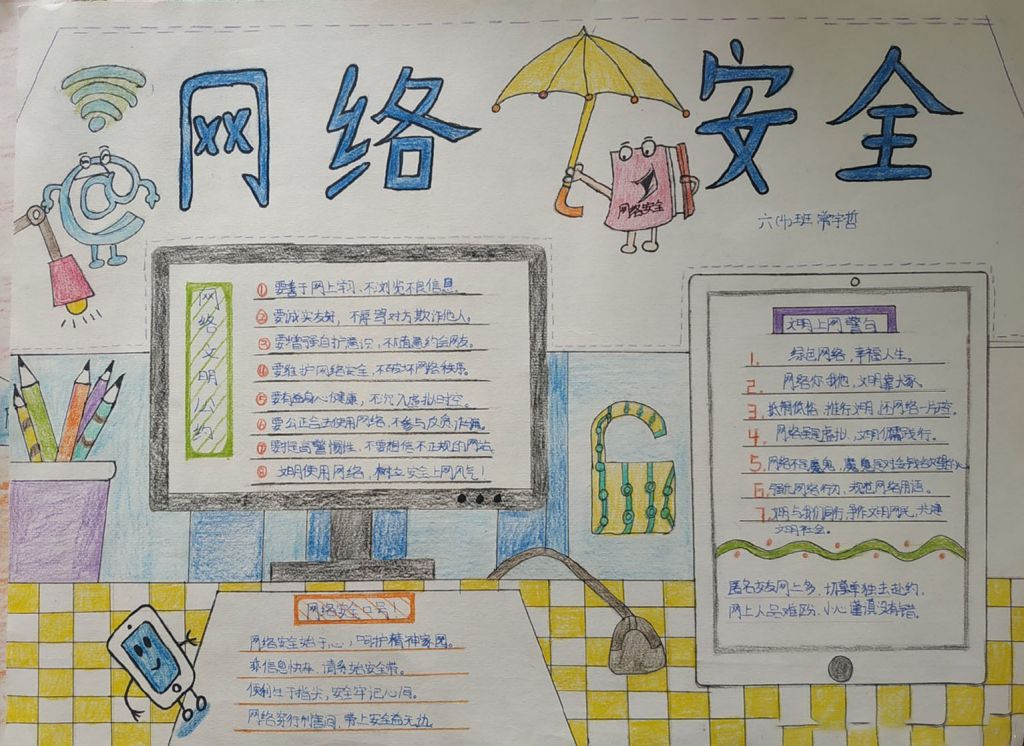 网络安全
网络安全
六(4)班 常宇哲
网络文明公约
① 要善于网上学习、不浏览不良信息。
② 要诚实友好，不辱骂对方欺诈他人。
③ 要增强自护意识，不随意约会网友。
④ 要维护网络安全，不破坏网络秩序。
⑤ 要有益身心健康，不沉入虚拟时空。
⑥ 要公正合法使用网络，不参与反负
⑦ 要提高警惕性，不要想信不正规的网站
⑧ 文明使用网络，树立安全上网风气！
文明上网警句
1. 绿色网络，幸福人生。
2. 网络你我他，文明靠大家。
3. 抵制低俗，推行文明，还网络一片
4. 网络虽是虚拟，文明仍需践行。
5. 网络不是魔鬼，魔鬼
6. 网络行为，规范网络用语。
7. 文明与我们同行，争作文明网民，共建
文明社会。
匿名交友网上多，切莫单独去赴约。
网上人品难区分，小心谨慎没有错。
网络安全口号！
网络安全始于心，呵护精神家园。
乘信息快车、请系
便利生于指尖，安全牢记心间。
网络穿行刹